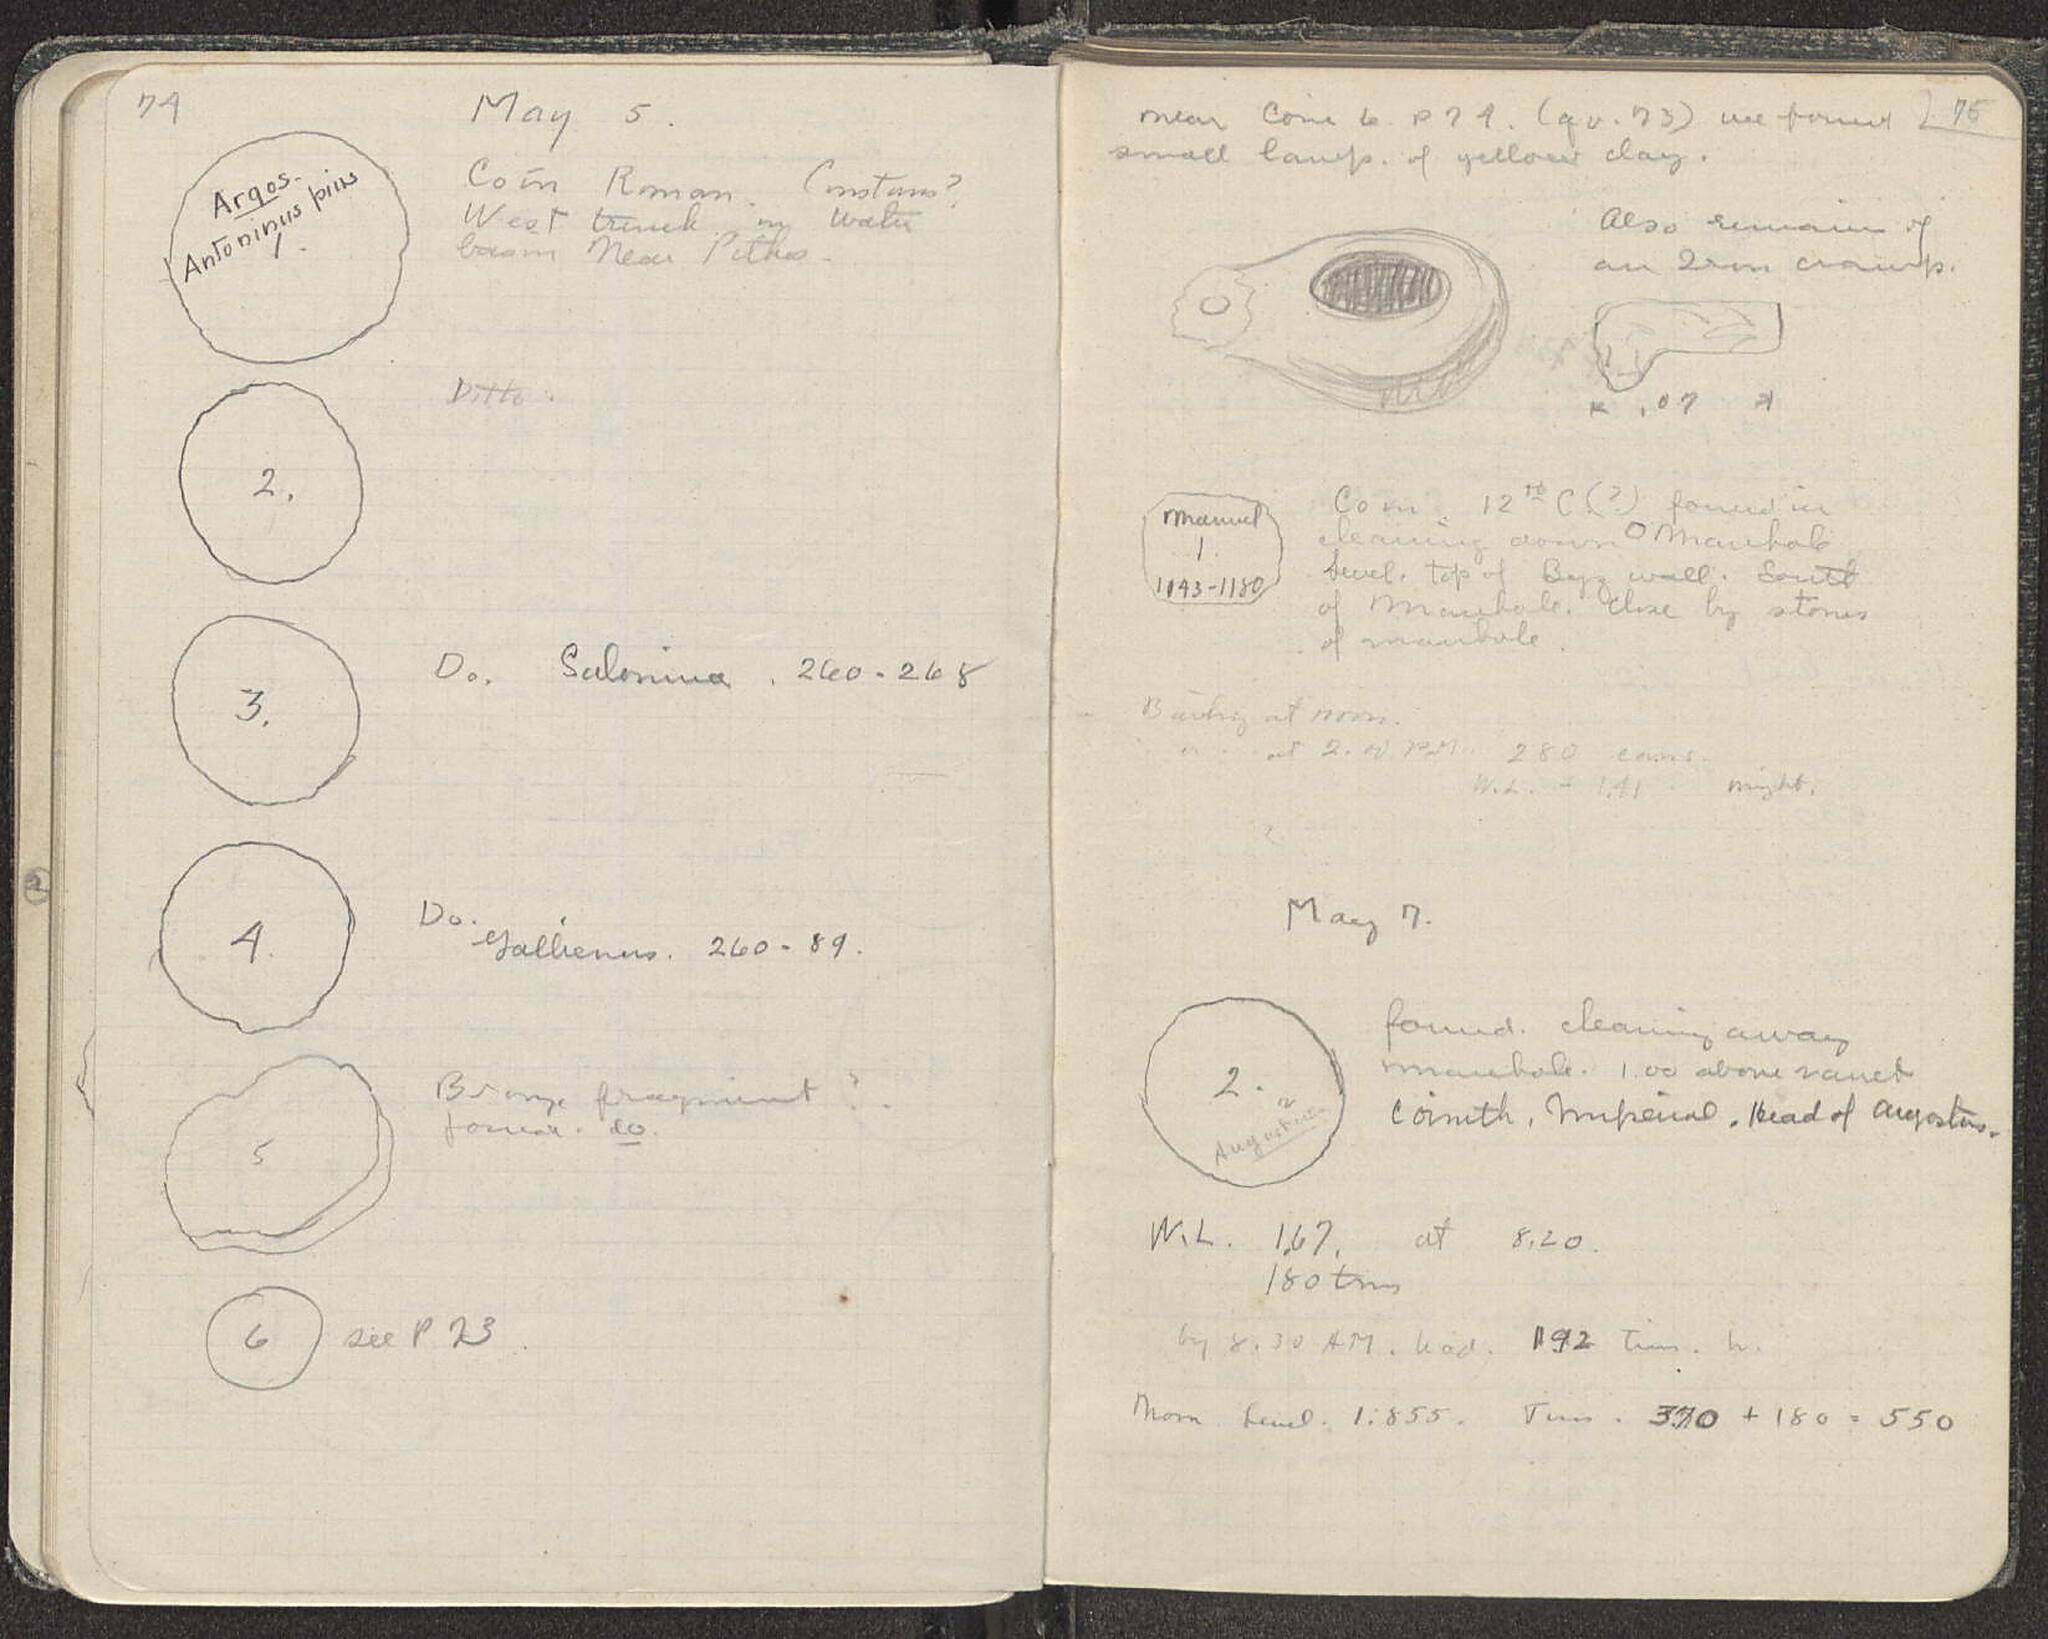 74
May 5.
Argos.
Antoninus pius
1.
Coin Roman. Constans?
West trench in water
basin Near Pithos.
2.
Ditto.
3.
Do. Salonina. 260-268
4.
Do.
Gallienus. 260-89.
5
Bronze fragment?
found. do.
6
see P 23.
75
near Coin 6. P 74. (qv. 73) we found
small lamp. of yellow clay.
Also remains of
an iron cramp.
.07
Manuel
1.
1143-1180
Coin. 12th C(?) found in
cleaning down Manhole
Level. top of Byz wall. South
of Manhole. Close by stones
of manhole.
at noon.
at 2. P.M. 280 cans.
W.L. - 1.41 night.
May 7.
2.
Augustus
found. cleaning away
manhole. 1.00 above
Corinth. Imperial. Head of Augostus.
W.L. 1.67. at 8.20.
180 tins
by 8.30 AM. had. 192 Tins.
Level. 1.855. Tins. 370 + 180 = 550